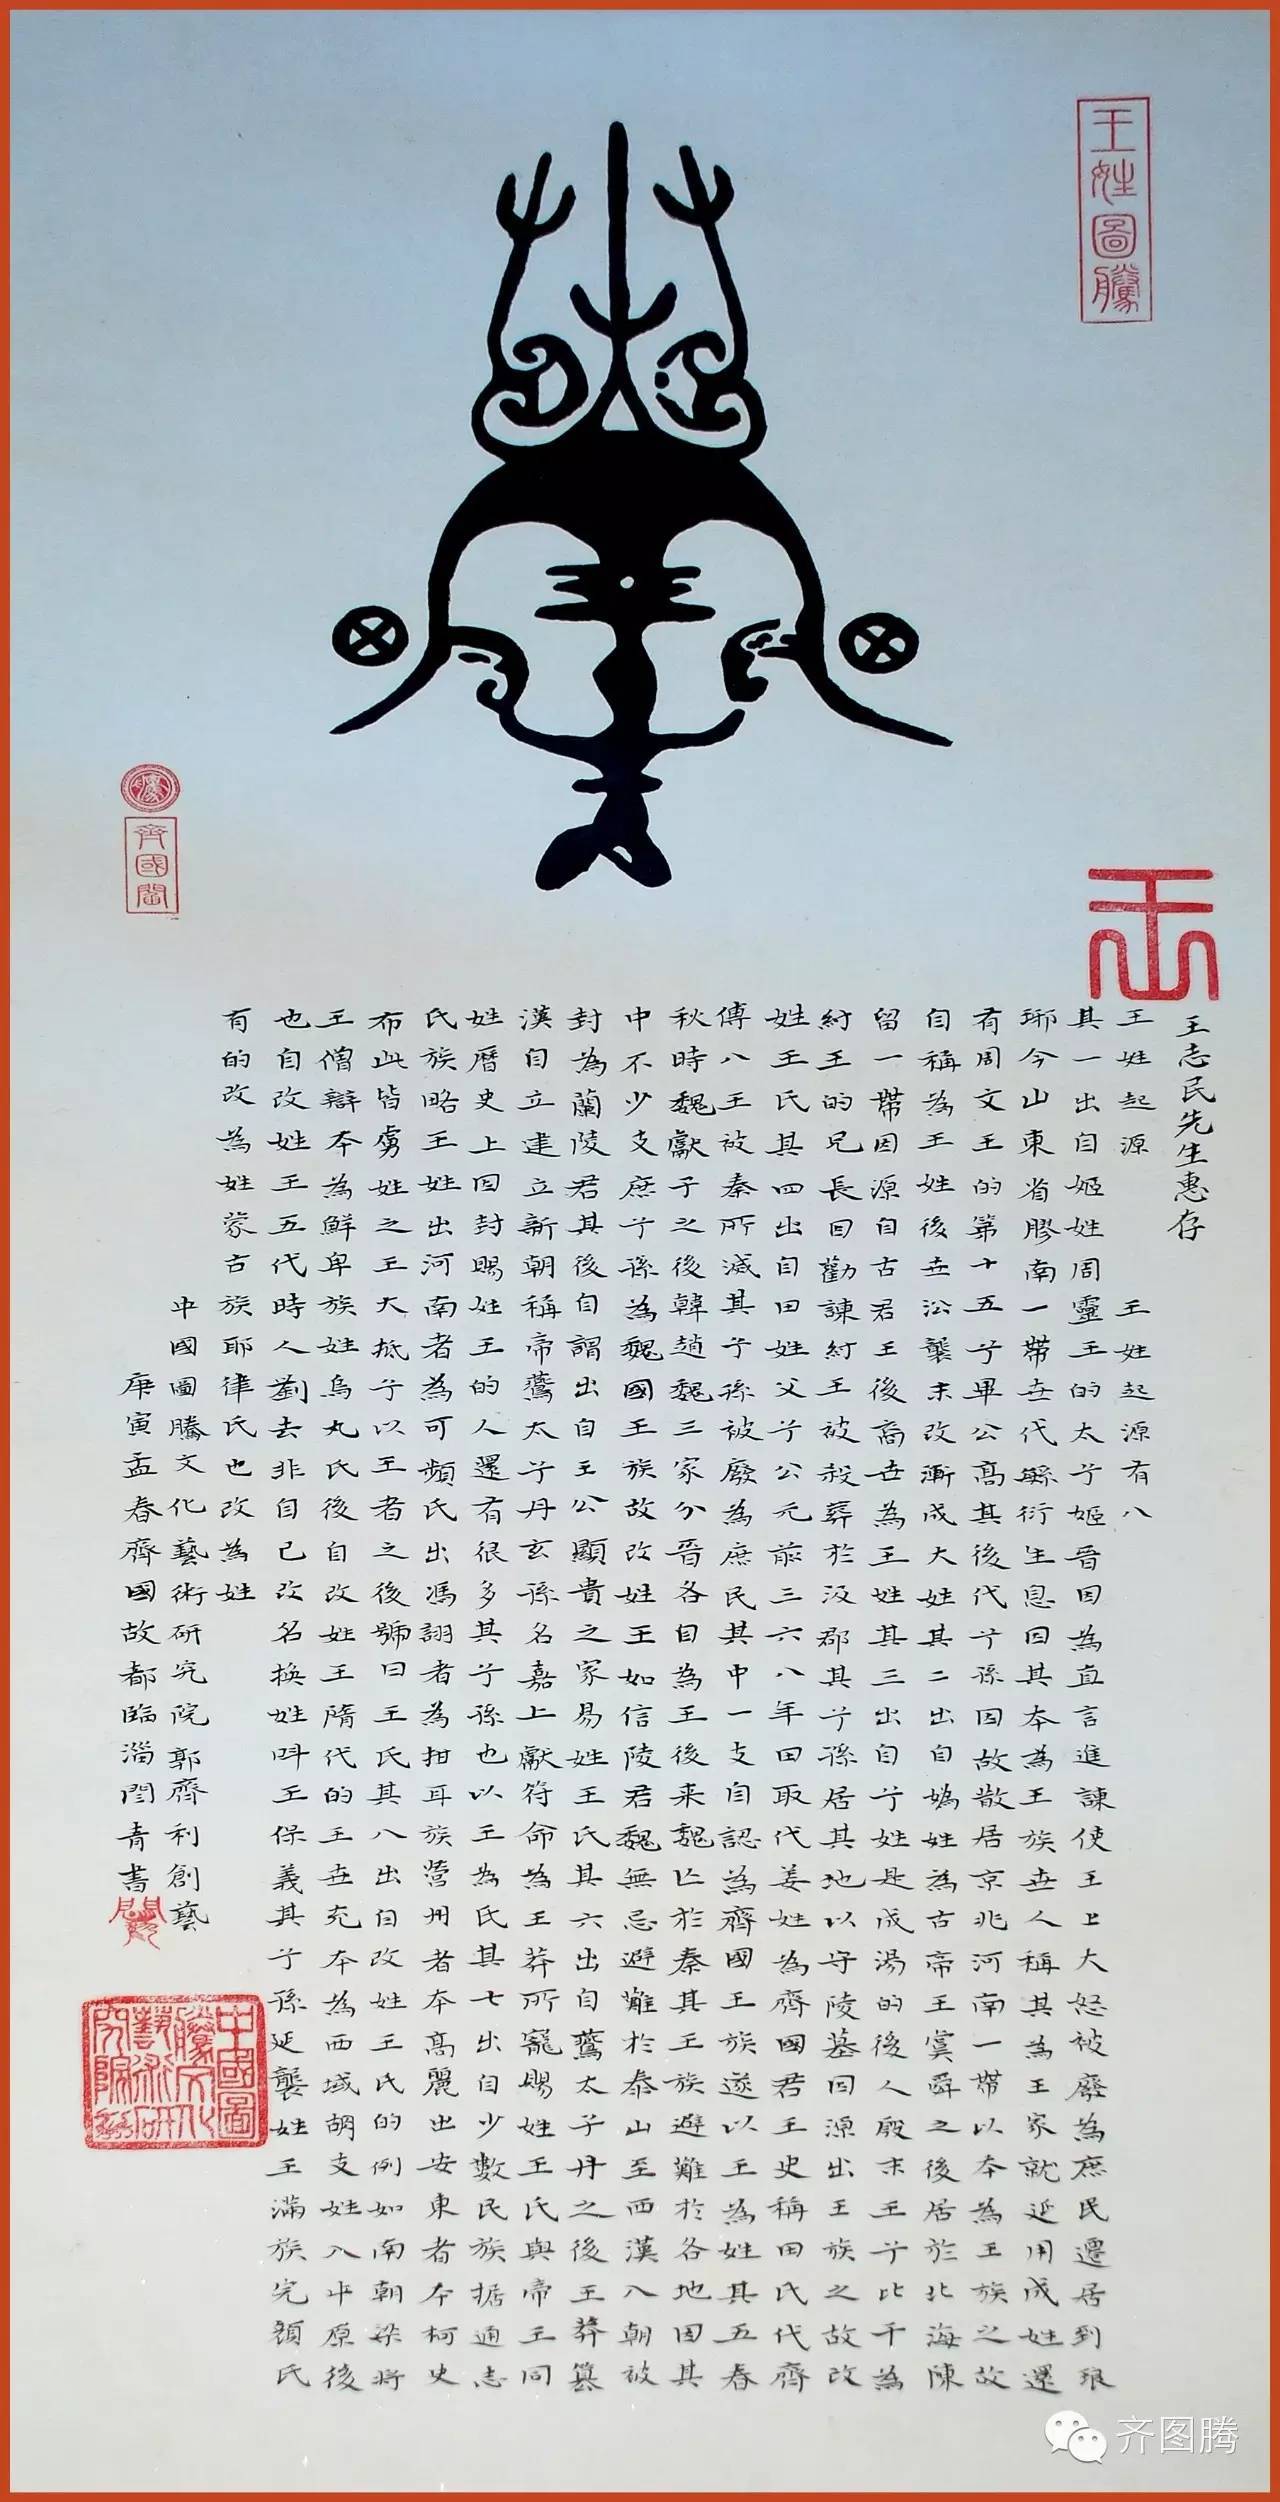 王姓圖騰
王志民先生惠存
王姓起源 王姓起源有八
其一出自姬姓周靈王的太子姬晋因為直言進諫使王上大怒被廢為庶民遷居到琅
琊今山東省膠南一帶世代繇衍生息因其本為王族世人稱其為王家就延用成姓還
有周文王的第十五子畢公高其後代子孫因故散居京兆河南一帶以本為王族之故
自稱為王姓後世沿襲未改漸成大姓其二出自媯姓為古帝王虞舜之後居於北海陳
留一帶因源自古君王後裔世為王姓其三出自子姓是成湯的後人殷末王子比干為
紂王的兄長因勸諫紂王被殺葬於汲郡其子孫居其地以守陵墓因源出王族之故改
姓王氏其四出自田姓父子公元前三六八年田取代姜姓為齊國君王史稱田氏代齊
傳八王被秦所滅其子孫被廢為庶民其中一支自認為齊國王族遂以王為姓其五春
秋時魏獻子之後韓趙魏三家分晋各自為王後来魏亡於秦其王族避難於各地因其
中不少支庶子孫為魏國王族故改姓王如信陵君魏無忌避難於泰山至西漢入朝被
封為蘭陵君其後自謂出自王公顯貴之家易姓王氏其六出自燕太子丹之後王莽篡
漢自立建立新朝稱帝燕太子丹玄孫名嘉上獻符命為王莽所寵賜姓王氏與帝王同
姓曆史上因封賜姓王的人還有很多其子孫也以王為氏其七出自少數民族据通志
氏族略王姓出河南者為可頻氏出馮翊者為拑耳族營州者本高麗出安東者本柯史
布此皆虜姓之王大抵子以王者之後號曰王氏其八出自改姓王氏的例如南朝梁將
王僧辯本為鮮卑族姓烏丸氏後自改姓王隋代的王世充本為西域胡支姓入中原後
也自改姓王五代時人劉去非自己改名換姓叫王保義其子孫延襲姓王滿族完顏氏
有的改為姓蒙古族耶律氏也改為姓
中國圖騰文化藝術研究院郭齊利創藝
庚寅孟春齊國故都臨淄閆青書
齊國
中國圖騰文化藝術研究院
齐图腾